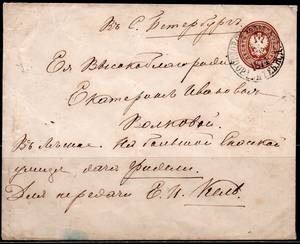 Въ С. Петербургъ.
Ея Высокоблагородiю
Екатеринѣ Ивановнѣ
Волковой
Въ Лѣсное. На большой Спасской
улицѣ дача Фидели.
Для передачи Е. И. Кель.